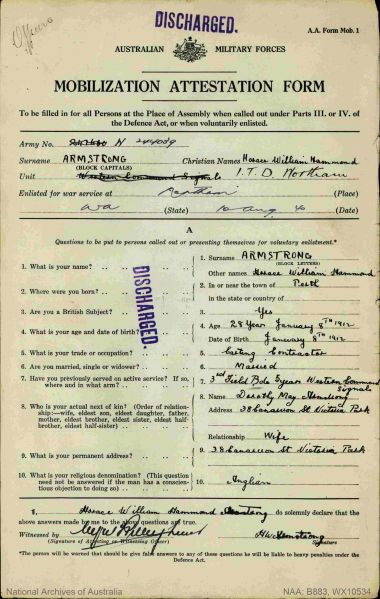 DISCHARGED.
A.A. Form Mob. 1
AUSTRALIAN MILITARY FORCES
MOBILIZATION ATTESTATION FORM
To be filled in for all Persons at the Place of Assembly when called out under Parts III. or IV. of
the Defence Act, or when voluntarily enlisted.
Army No.
Surname ARMSTRONG Christian Names Horace William Hammond
(BLOCK CAPITALS)
Unit Western Command Signals I.T.D. Northam
Enlisted for war service at (Place)
WA (State) Aug (Date)
A
Questions to be put to persons called out or presenting themselves for voluntary enlistment.*
1. What is your name? 1. Surname ARMSTRONG
(BLOCK LETTERS)
Other names Horace William Hammond
2. Where were you born? 2. In or near the town of Perth
in the state or country of
3. Are you a British Subject? 3. Yes
4. What is your age and date of birth? 4. Age 28 Year January 8TH 1912
Date of Birth January 8TH 1912
5. What is your trade or occupation? 5. Carting Contractor
6. Are you married, single or widower? 6. Married
7. Have you previously served on active service? If so, where and in what arm? 7. 3rd Field Bde 5 years Western Command
Signals
8. Who is your actual next of kin? (Order of relation-
ship:—wife, eldest son, eldest daughter, father,
mother, eldest brother, eldest sister, eldest half-
brother, eldest half-sister)
8. Name Dorothy May Armstrong
Address 38 St Victoria Park
Relationship Wife
9. What is your permanent address? 9. 38 St Victoria Park
10. What is your religious denomination? (This question
need not be answered if the man has a conscien-
tious objection to doing so)
10. Anglican
DISCHARGED.
I, Horace William Hammond Armstrong do solemnly declare that the
above answers made by me to the above questions are true.
Witnessed by HW Armstrong
(Signature of Attesting or Witnessing Officer) Signature
*The person will be warned that should he give false answers to any of these questions he will be liable to heavy penalties under the
Defence Act.
National Archives of Australia
NAA: B883, WX10534